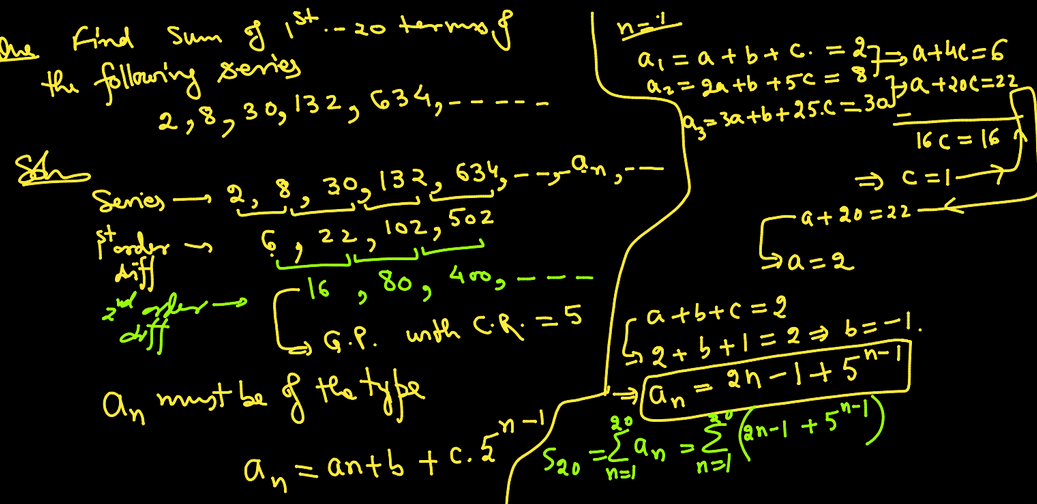 Que Find sum of 1st --- 20 terms of
the following series
2, 8, 30, 132, 634, ------
Soln
Series → 2, 8, 30, 132, 634, ---, an, ---
1st order diff → 6, 22, 102, 502
2nd order diff → 16, 80, 400, ----
⇒ G.P. with C.R. = 5
an must be of the type
an = an + b + c. 5^(n-1)
n = 1
a1 = a + b + c. = 2
a2 = 2a + b + 5c = 8
a3 = 3a + b + 25.c = 30
⇒ a + 4c = 6
⇒ a + 20c = 22
-
16c = 16
⇒ c = 1
a + 20 = 22
⇒ a = 2
a + b + c = 2
⇒ 2 + b + 1 = 2 ⇒ b = -1.
⇒ an = 2n - 1 + 5^(n-1)
S20 = 20∑n=1 an = 20∑n=1 (2n - 1 + 5^(n-1))